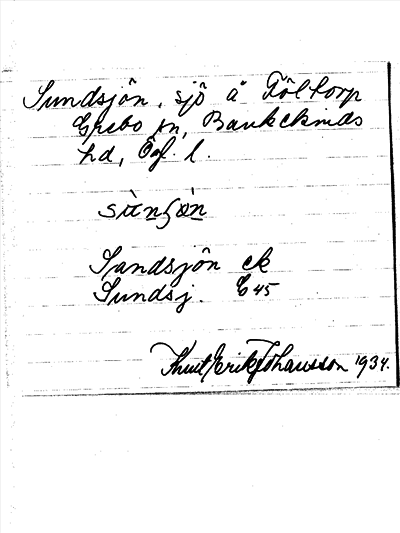 Sundsjön, sjö å Föltorp
Grebo sn, Bankekinds
hd, Ög. l.
Sandsjön ek
Sundsj. E 45
Knut Erik Johansson 1934.